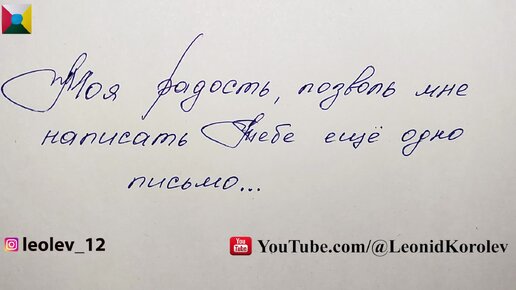 Моя радость, позволь мне
написать Тебе ещё одно
письмо...
leolev_12
YouTube.com/@LeonidKorolev